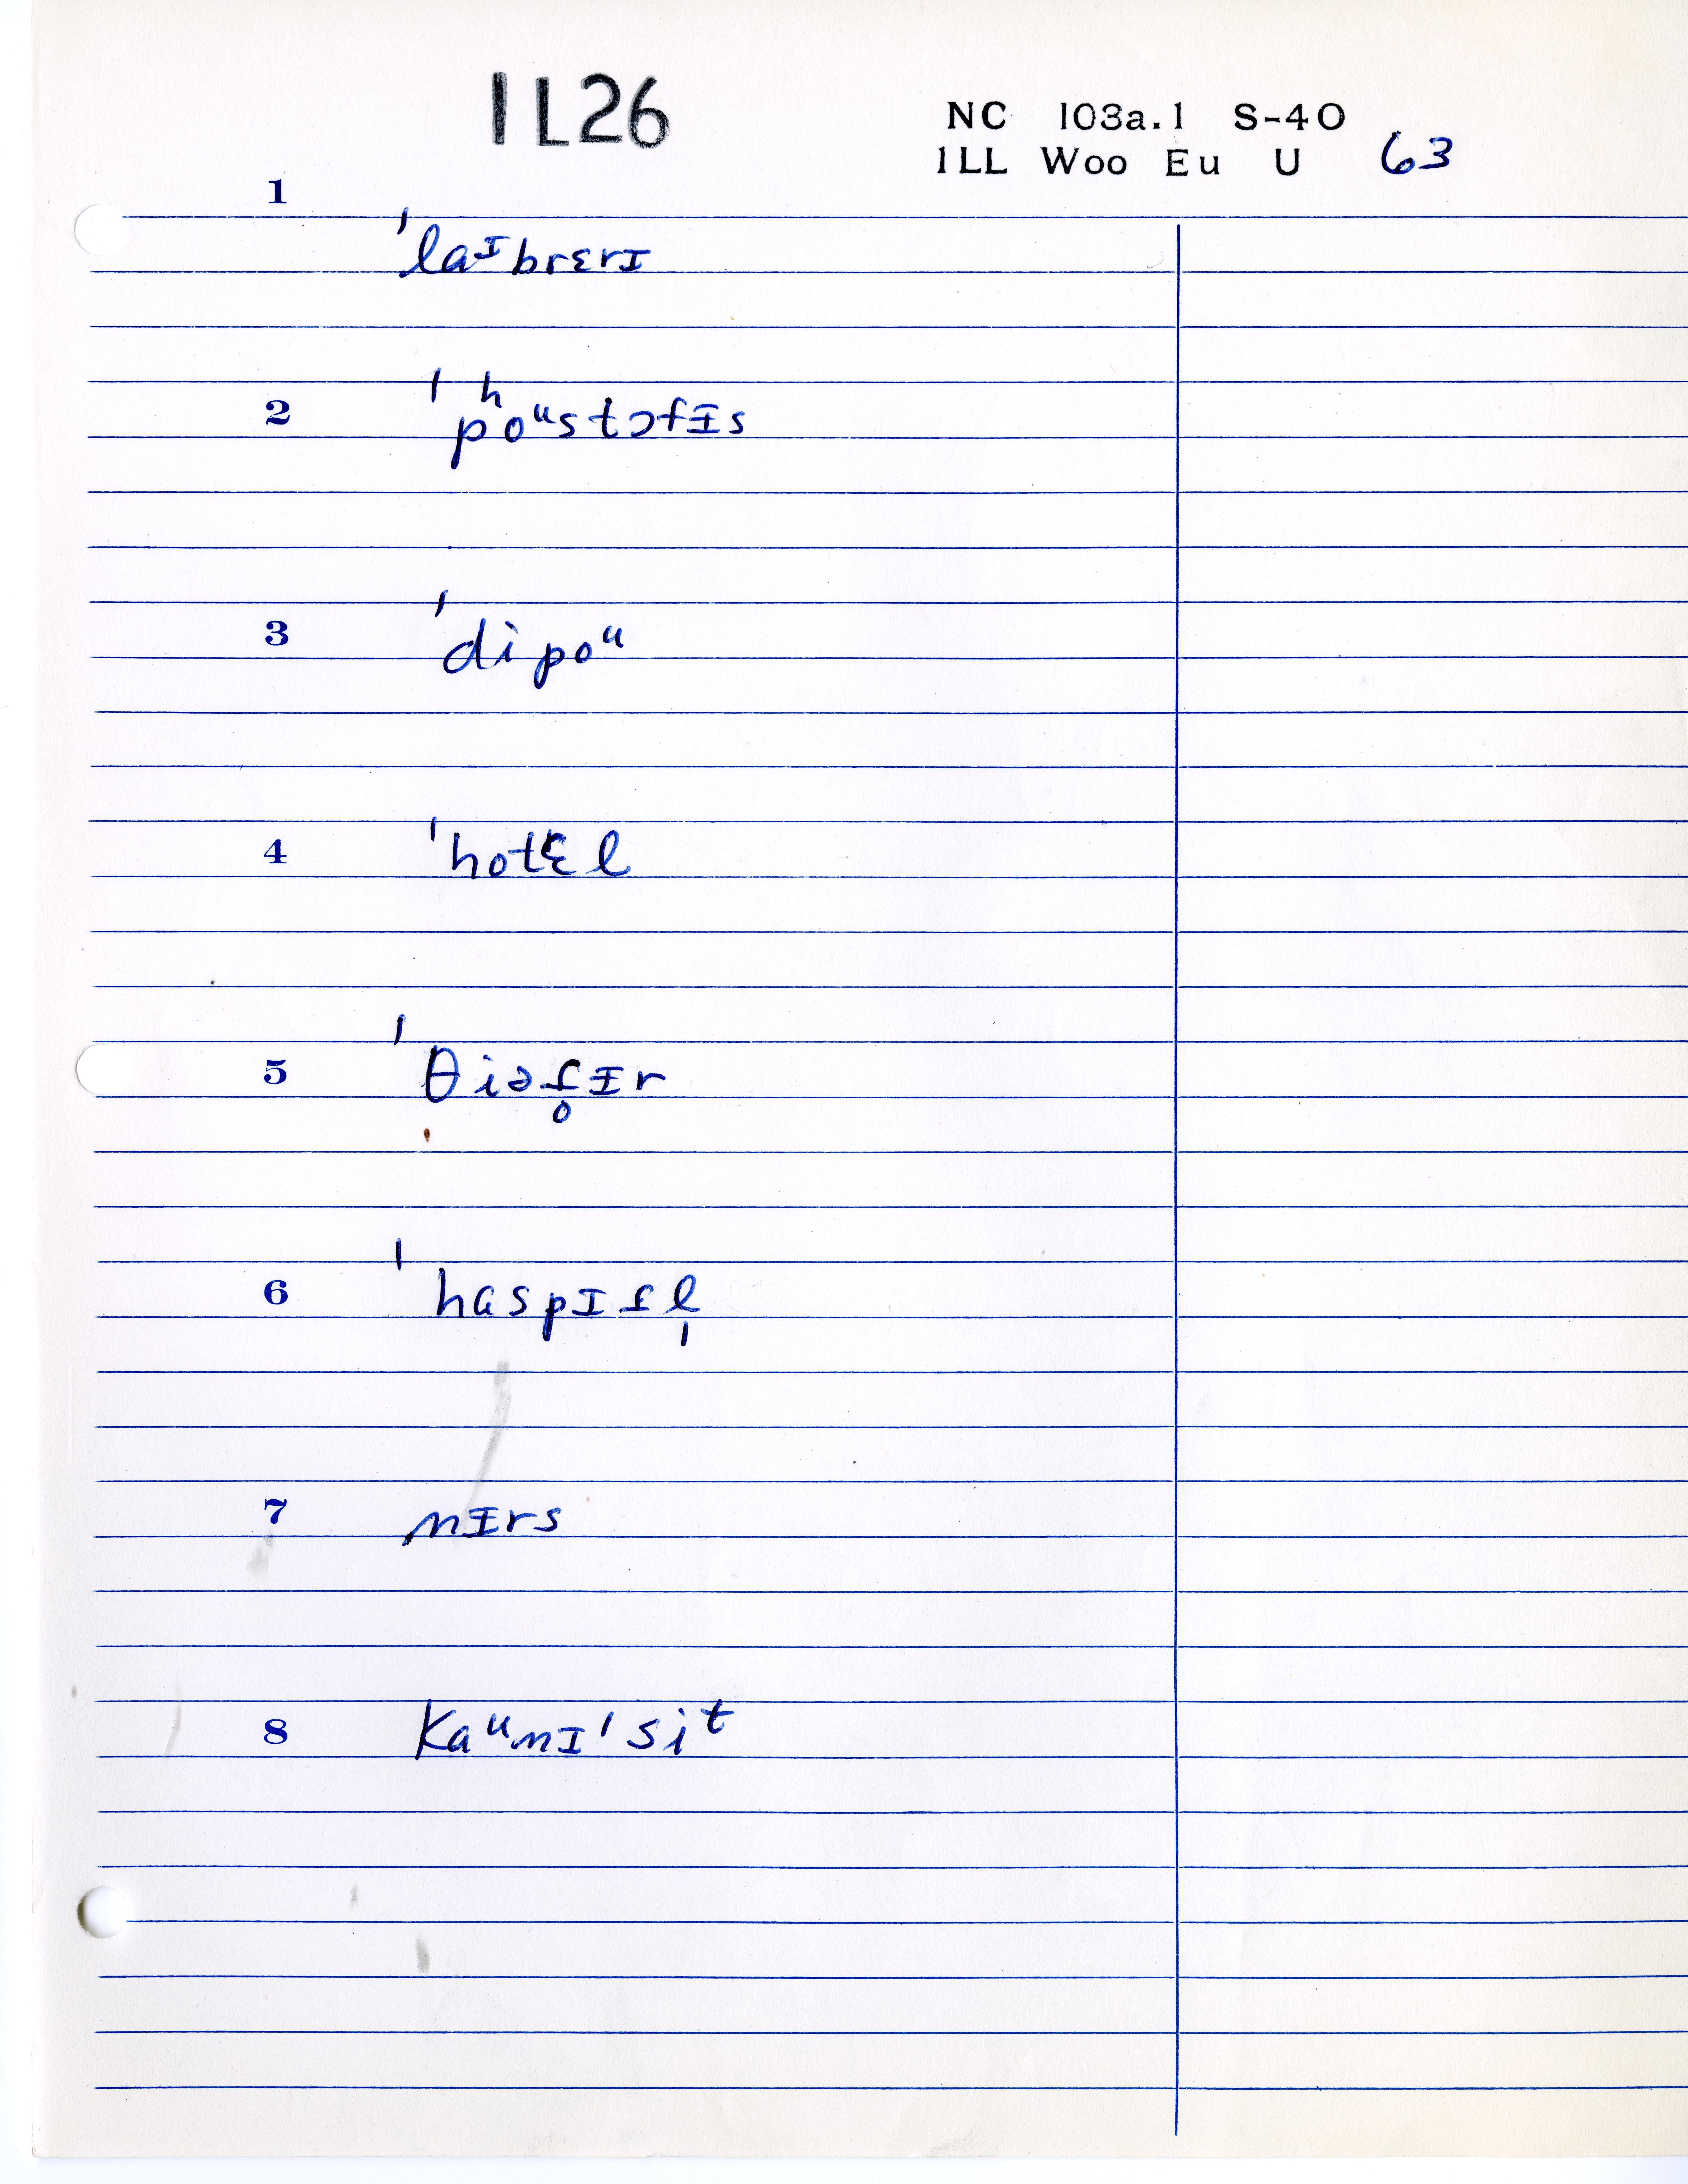 1L26
NC 103a.1 S-40
1LL Woo Eu U 63
1 ˈlaᶦbrɛrɪ
2 ˈpʰoᵘstɔfɪs
3 ˈdipoᵘ
4 ˈhotɛl
5 ˈθiət̬̥ɪr
6 ˈhaspɪt̬l̩
7 nɪrs
8 kaᵘnɪˈsiᵗ